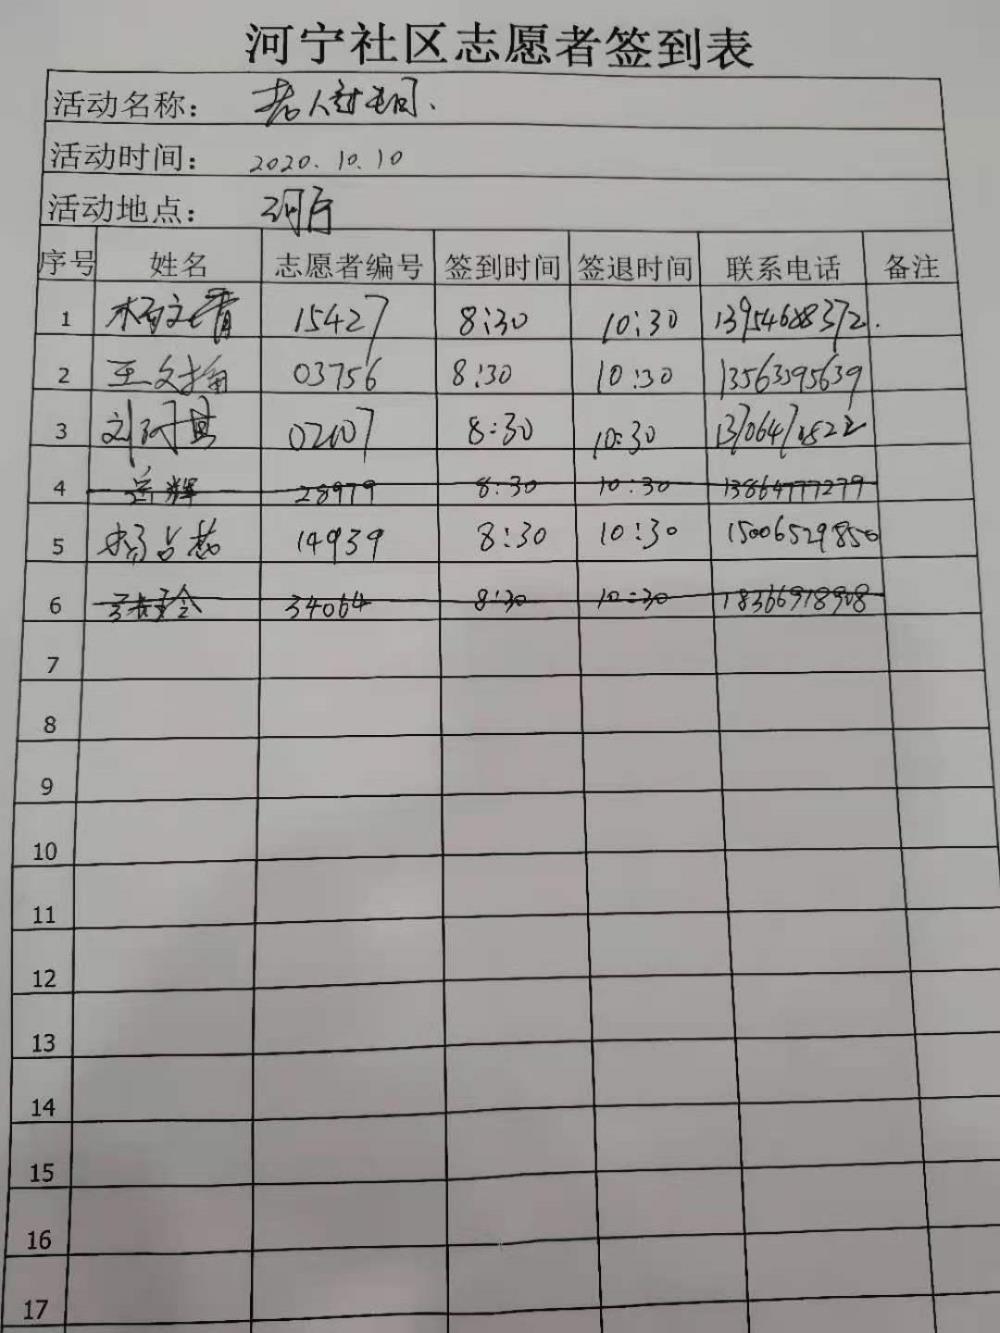 河宁社区志愿者签到表
活动名称：老人
活动时间：2020.10.10
活动地点：
序号 姓名 志愿者编号 签到时间 签退时间 联系电话 备注
1 杨文霄 15427 8:30 10:30 13954688372
2 王文 03756 8:30 10:30 13563595639
3 刘 02107 8:30 10:30
4 岳辉 28979 8:30 10:30 13864777279
5 杨占 14939 8:30 10:30 15006529850
6 34064 8:30 10:30 18366918908
7
8
9
10
11
12
13
14
15
16
17